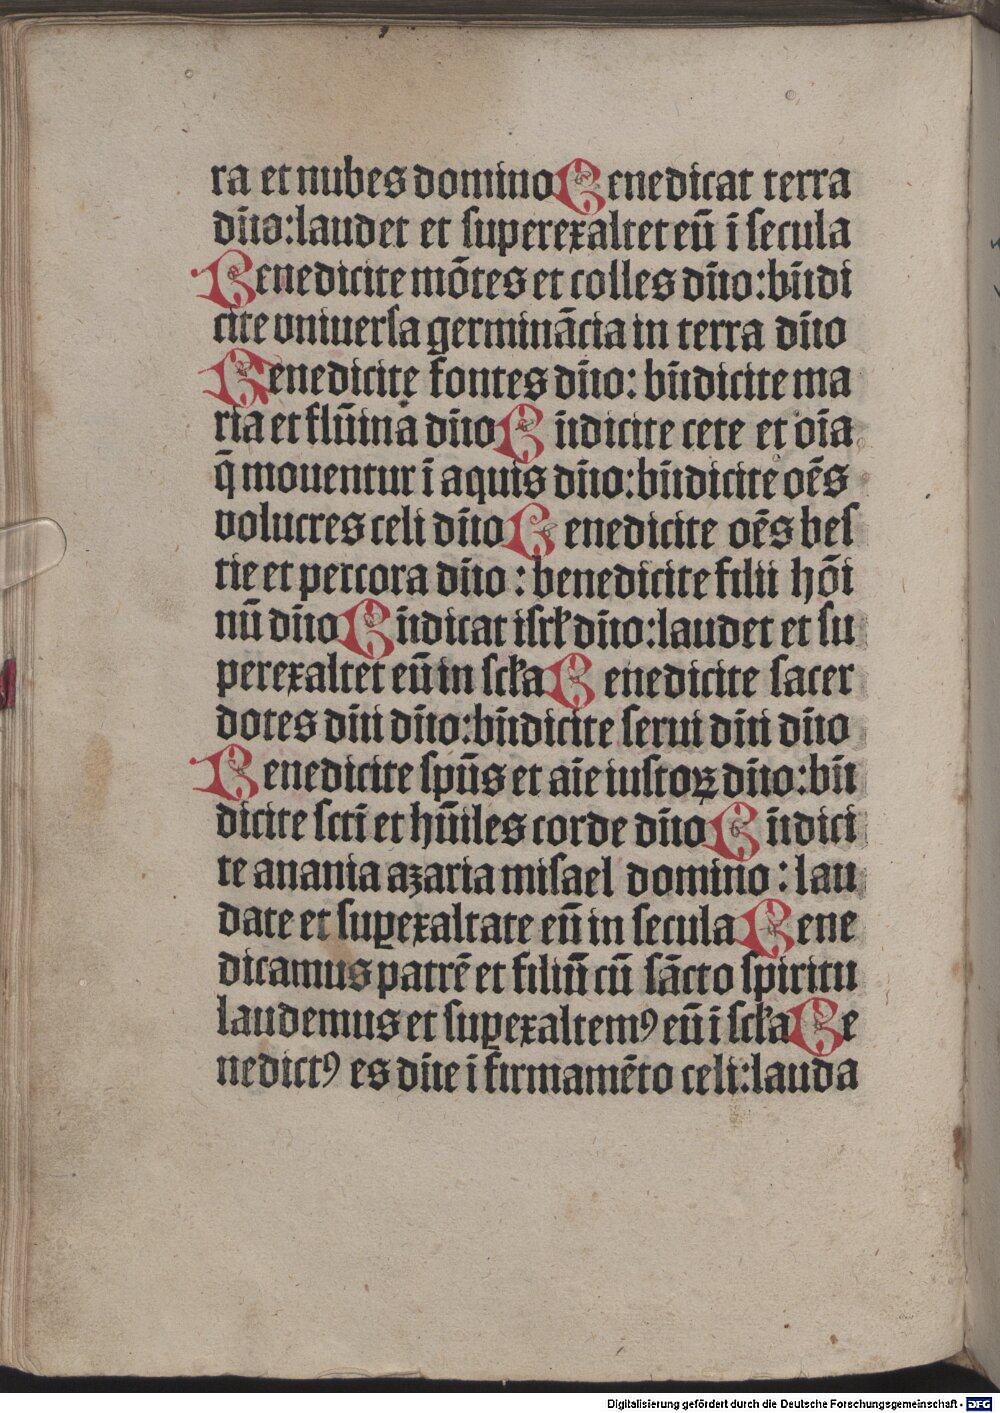 ra et nubes domino Benedicat terra
dño: laudet et superexaltet eū ī secula
Benedicite mōtes et colles dño: bñdi
cite vniuersa germinācia in terra dño
Benedicite fontes dño: bñdicite ma
ria et flūina dño Bñdicite cete et oīa
q̄ mouentur ī aquis dño: bñdicite oēs
volucres celi dño Benedicite oēs bes
tie et peccora dño: benedicite filii hōi
nū dño Bñdicat isrł dño: laudet et su
perexaltet eū in scła Benedicite sacer
dotes dñi dño: bñdicite serui dñi dño
Benedicite spūs et aīe iustoꝝ dño: bñ
dicite scti̅ et hūiles corde dño Bñdici
te anania azaria misael domino: lau
date et suꝑexaltate eū in secula Bene
dicamus patrē et filiū cū sācto spiritu
laudemus et suꝑexaltemꝰ eū ī scła Be
nedictꝰ es dñe ī firmamēto celi: lauda
Digitalisierung gefördert durch die Deutsche Forschungsgemeinschaft - DFG